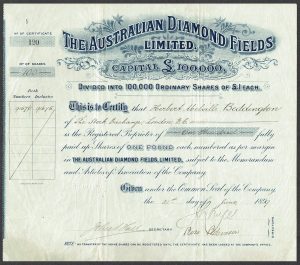 Nº OF CERTIFICATE
190
Nº OF SHARES
100
Both
Numbers Inclusive
THE AUSTRALIAN DIAMOND FIELDS
LIMITED.
CAPITAL £100,000,
DIVIDED INTO 100,000 ORDINARY SHARES OF £1. EACH.
This is to Certify that Herbert Beddington
of The Stock Exchange, London E.C.
is the Registered Proprietor of One Hundred fully
paid up Shares of ONE POUND each, numbered as per margin
in THE AUSTRALIAN DIAMOND FIELDS, LIMITED, subject to the Memorandum
and Articles of Association of the Company.
Given under the Common Seal of the Company,
the day of June
SECRETARY
DIRECTORS
NOTE. NO TRANSFER CAN BE REGISTERED UNTIL THE CERTIFICATE HAS BEEN LODGED AT THE COMPANY'S OFFICE.